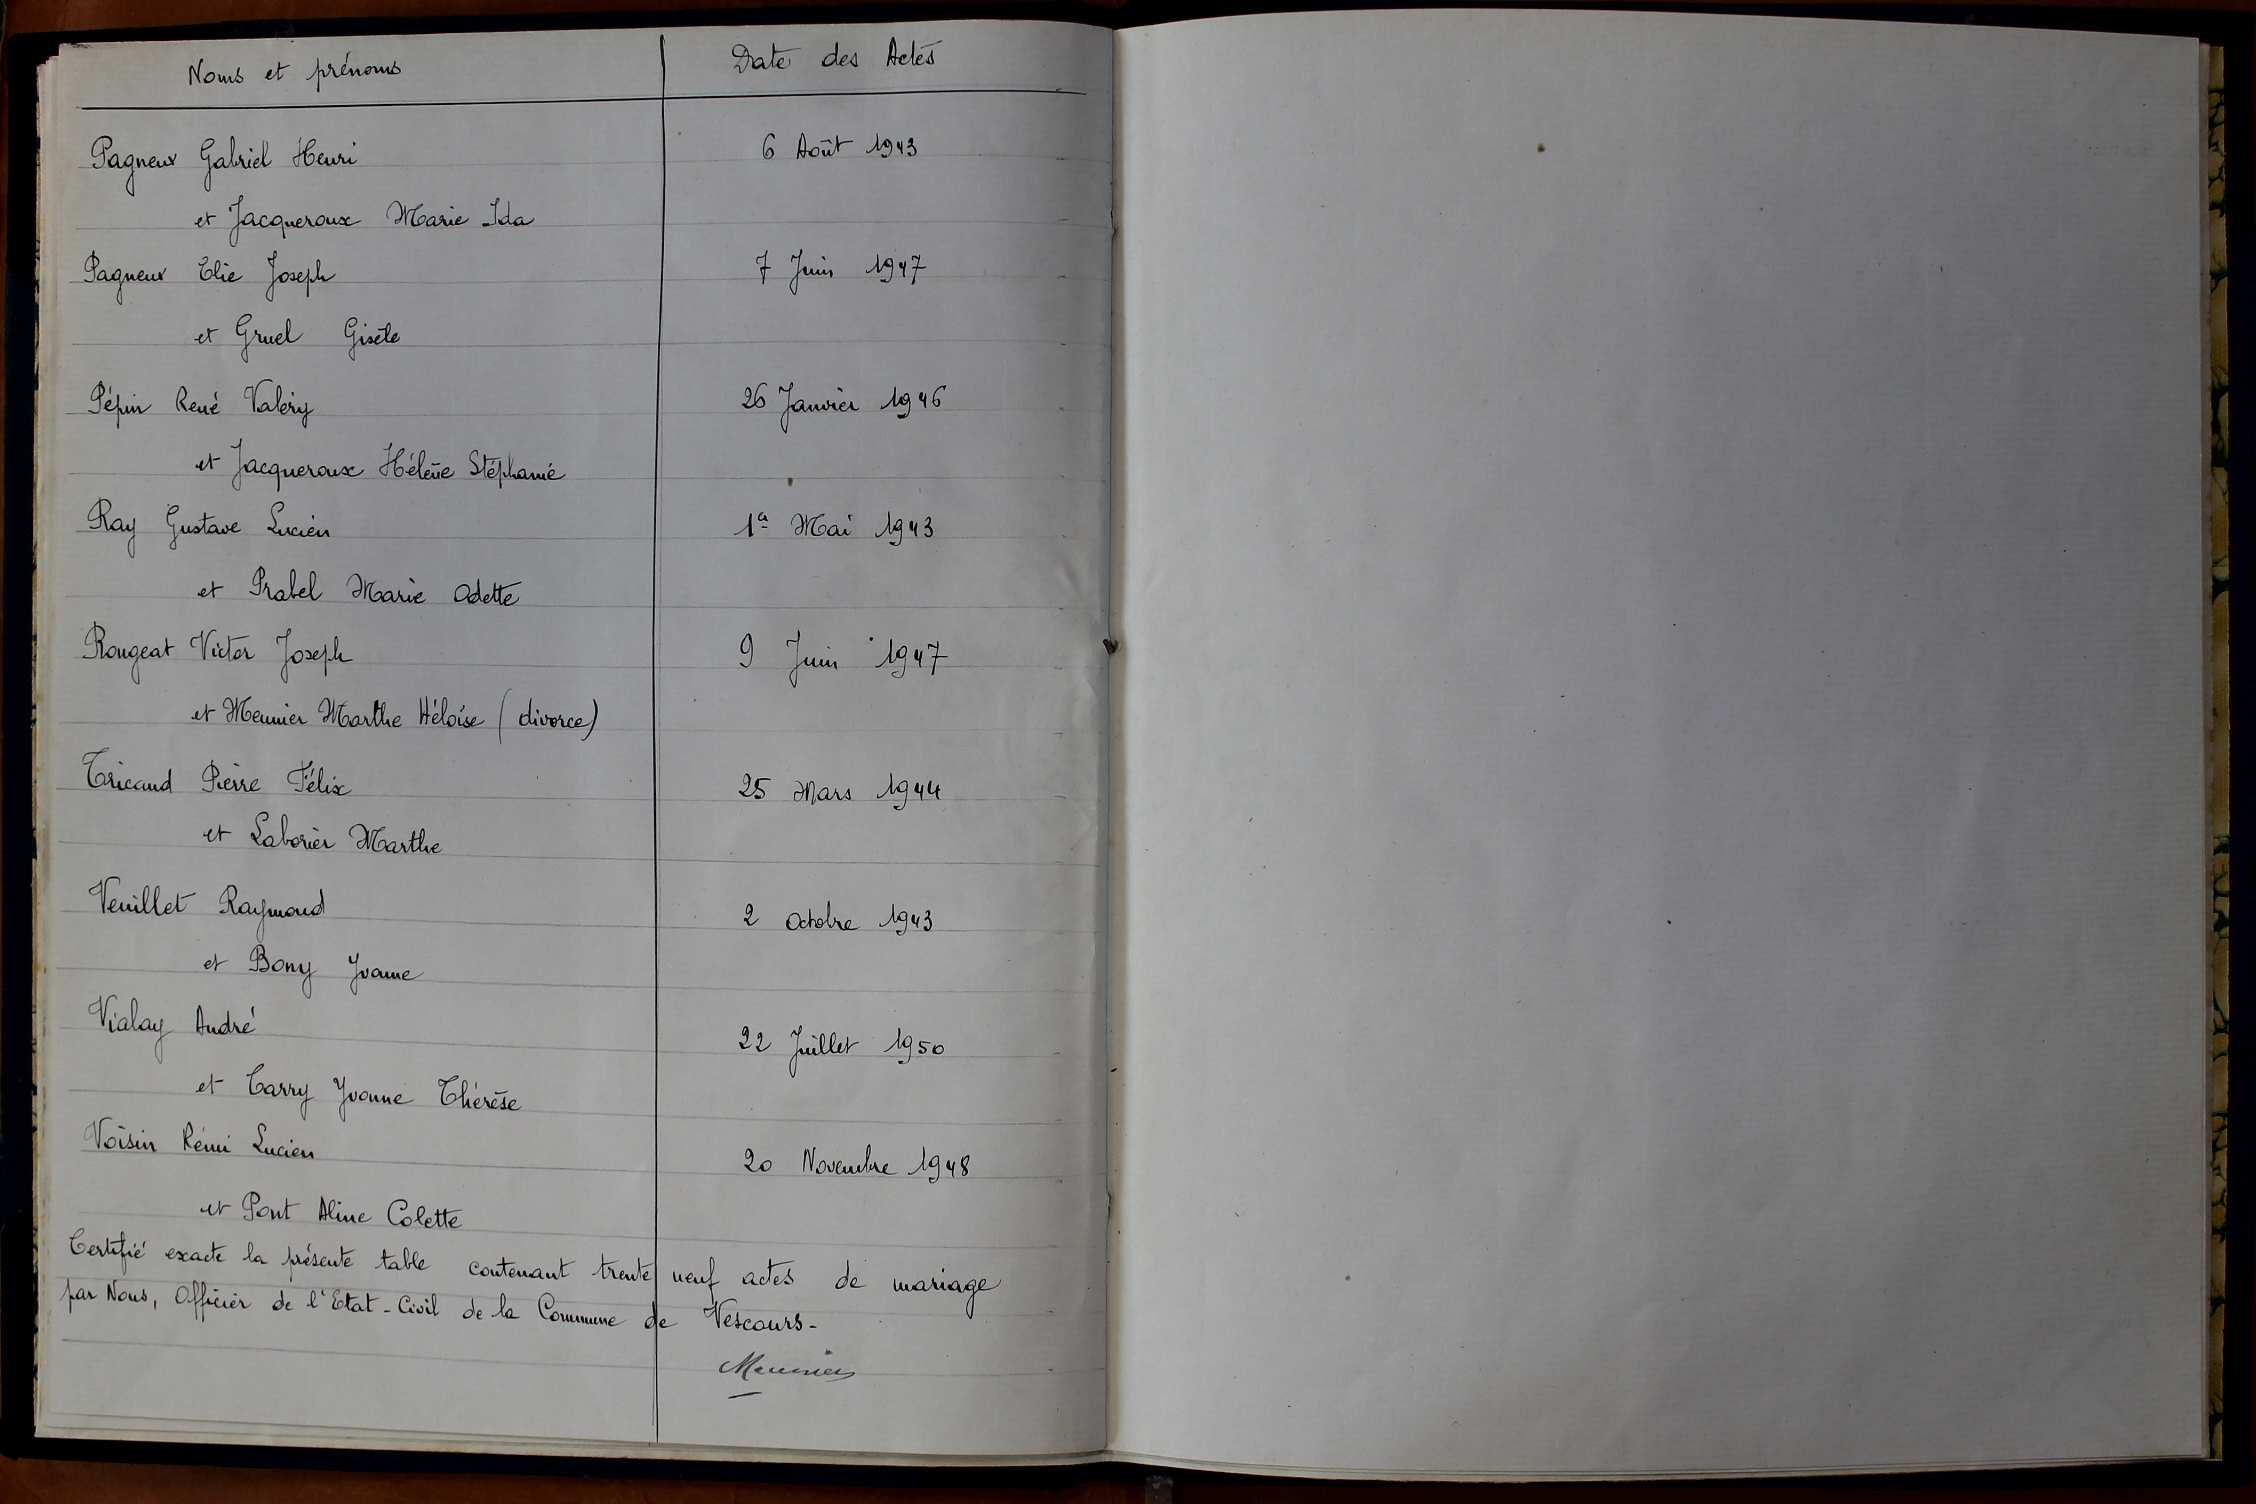 Noms et prénoms Date des Actes
Pagneux Gabriel Henri 6 Août 1943
et Jacqueroux Marie Ida
Pagneux Elie Joseph 7 Juin 1947
et Gruel Gisèle
Pépin René Valéry 26 Janvier 1946
et Jacqueroux Hélène Stéphanie
Ray Gustave Lucien 1er Mai 1943
et Prabel Marie Odette
Rongeat Victor Joseph 9 Juin 1947
et Meunier Marthe Héloïse (divorce)
Tricaud Pierre Félix 25 Mars 1944
et Laborier Marthe
Veuillet Raymond 2 Octobre 1943
et Bony Yvonne
Vialay André 22 Juillet 1950
et Carry Yvonne Thérèse
Voisin Rémi Lucien 20 Novembre 1948
et Pont Aline Colette
Certifié exacte la présente table contenant trente neuf actes de mariage
par Nous, Officier de l'Etat-Civil de la Commune de Vescours-
Meunier